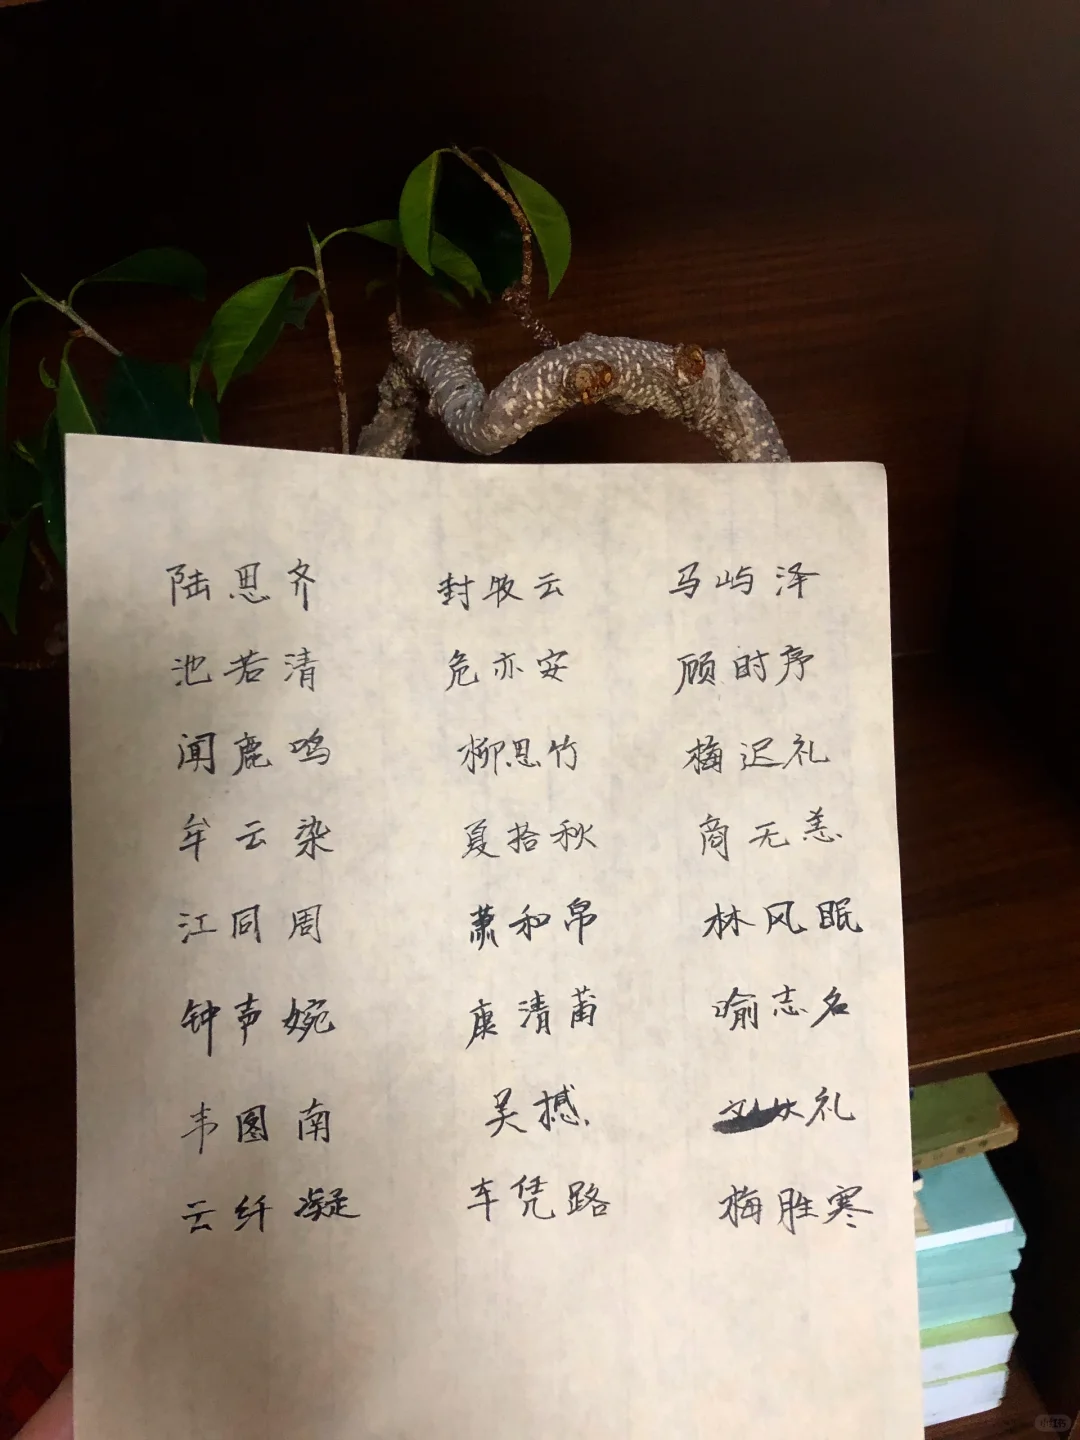 陆思齐 封牧云 马屿泽
池若清 危亦安 顾时序
闻鹿鸣 柳思竹 梅迟礼
牟云染 夏拾秋 商无恙
江同周 萧和帛 林风眠
钟声婉 康清莆 喻志名
韦图南 吴撼 礼
云纤凝 车凭路 梅胜寒
小红书